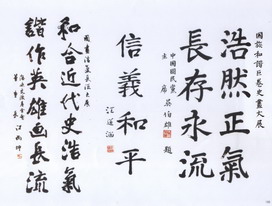 國誼和諧巨卷史畫大展
浩然正氣
長存永流
中國國民黨
主席 吳伯雄 題
信義和平
江丙坤
和合近代史浩氣
諧作英雄画長流
董事長 江丙坤